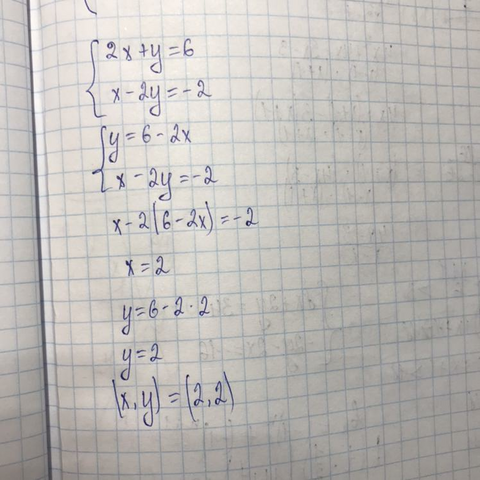 2x+y=6
x-2y=-2
y=6-2x
x-2y=-2
x-2(6-2x)=-2
x=2
y=6-2·2
y=2
(x,y)=(2,2)